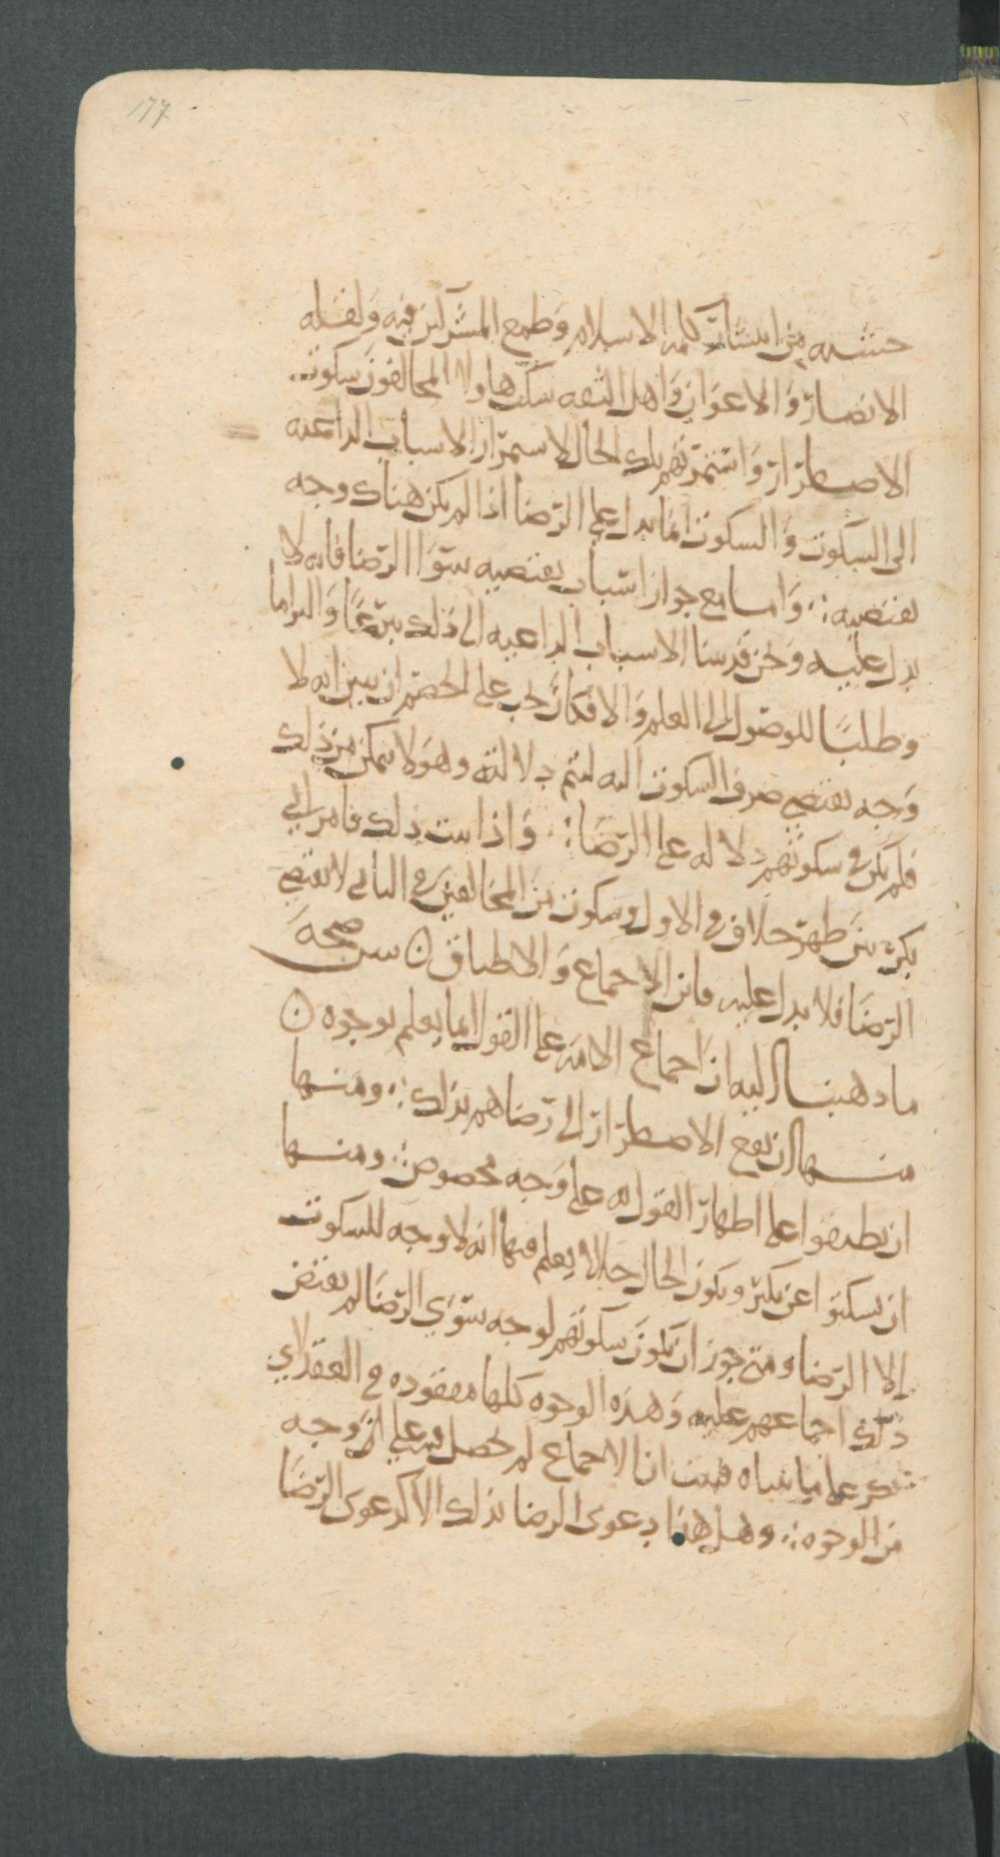 177
خشيه من انتشار كلمه الاسلام وطمع المشركين فيه ولقله
الانصار والاعوان واهل الثقه سكت هاولا المخالفون سكوت
الاصطرار واستمرت بهم تلك الحال لاستمرار الاسباب الداعيه
الى السكوت والسكوت انما يدل على الرضا اذا لم يكن هناك وجه
يقتضيه ؛ واما مع جواز اسباب يقتضيه سوا الرضا فانه لا
يدل عليه ونحن قد بينا الاسباب الداعيه الى ذلك تبرعا والزاما
وطلبا للوصول الى العلم والا فكان يجب على الخصم ان يبين انه لا
وجه يقتضي صرف السكوت اليه ليتم دلالته وهو لا يتمكن من ذلك
فلم يكن في سكوتهم دلاله على الرضا ؛ واذا ثبت ذلك فامر ابي
بكر بين ظهور خلاف في الاول وسكوت من المخالفين في الثاني لا يقتضي
الرضا فلا يدل عليه فاين الاجماع والاطباق ٥ يبين صحة
ما ذهبنا اليه ان اجماع الامه على القول انما يعلم بوجوه ٥
منها ان يقع الاصطرار الى رضاهم بذلك ؛ ومنها
ان يطبقوا على اظهار القول به على وجه مخصوص ؛ ومنها
ان يسكتوا عن نكير ويكون الحال حالا يعلم فيها انه لا وجه للسكوت
الا الرضا ومتى جوز ان يكون سكوتهم لوجه سوى الرضا لم يقتض
ذلك اجماعهم عليه وهذه الوجوه كلها مفقوده في العقد لابي
بكر على ما بيناه فثبت ان الاجماع لم يحصل فيه على وجه
من الوجوه ؛ وهل هذا دعوى الرضا بذلك الا كدعوى الرضا